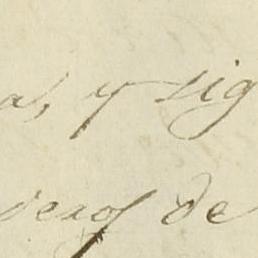 a, y sig
deros de